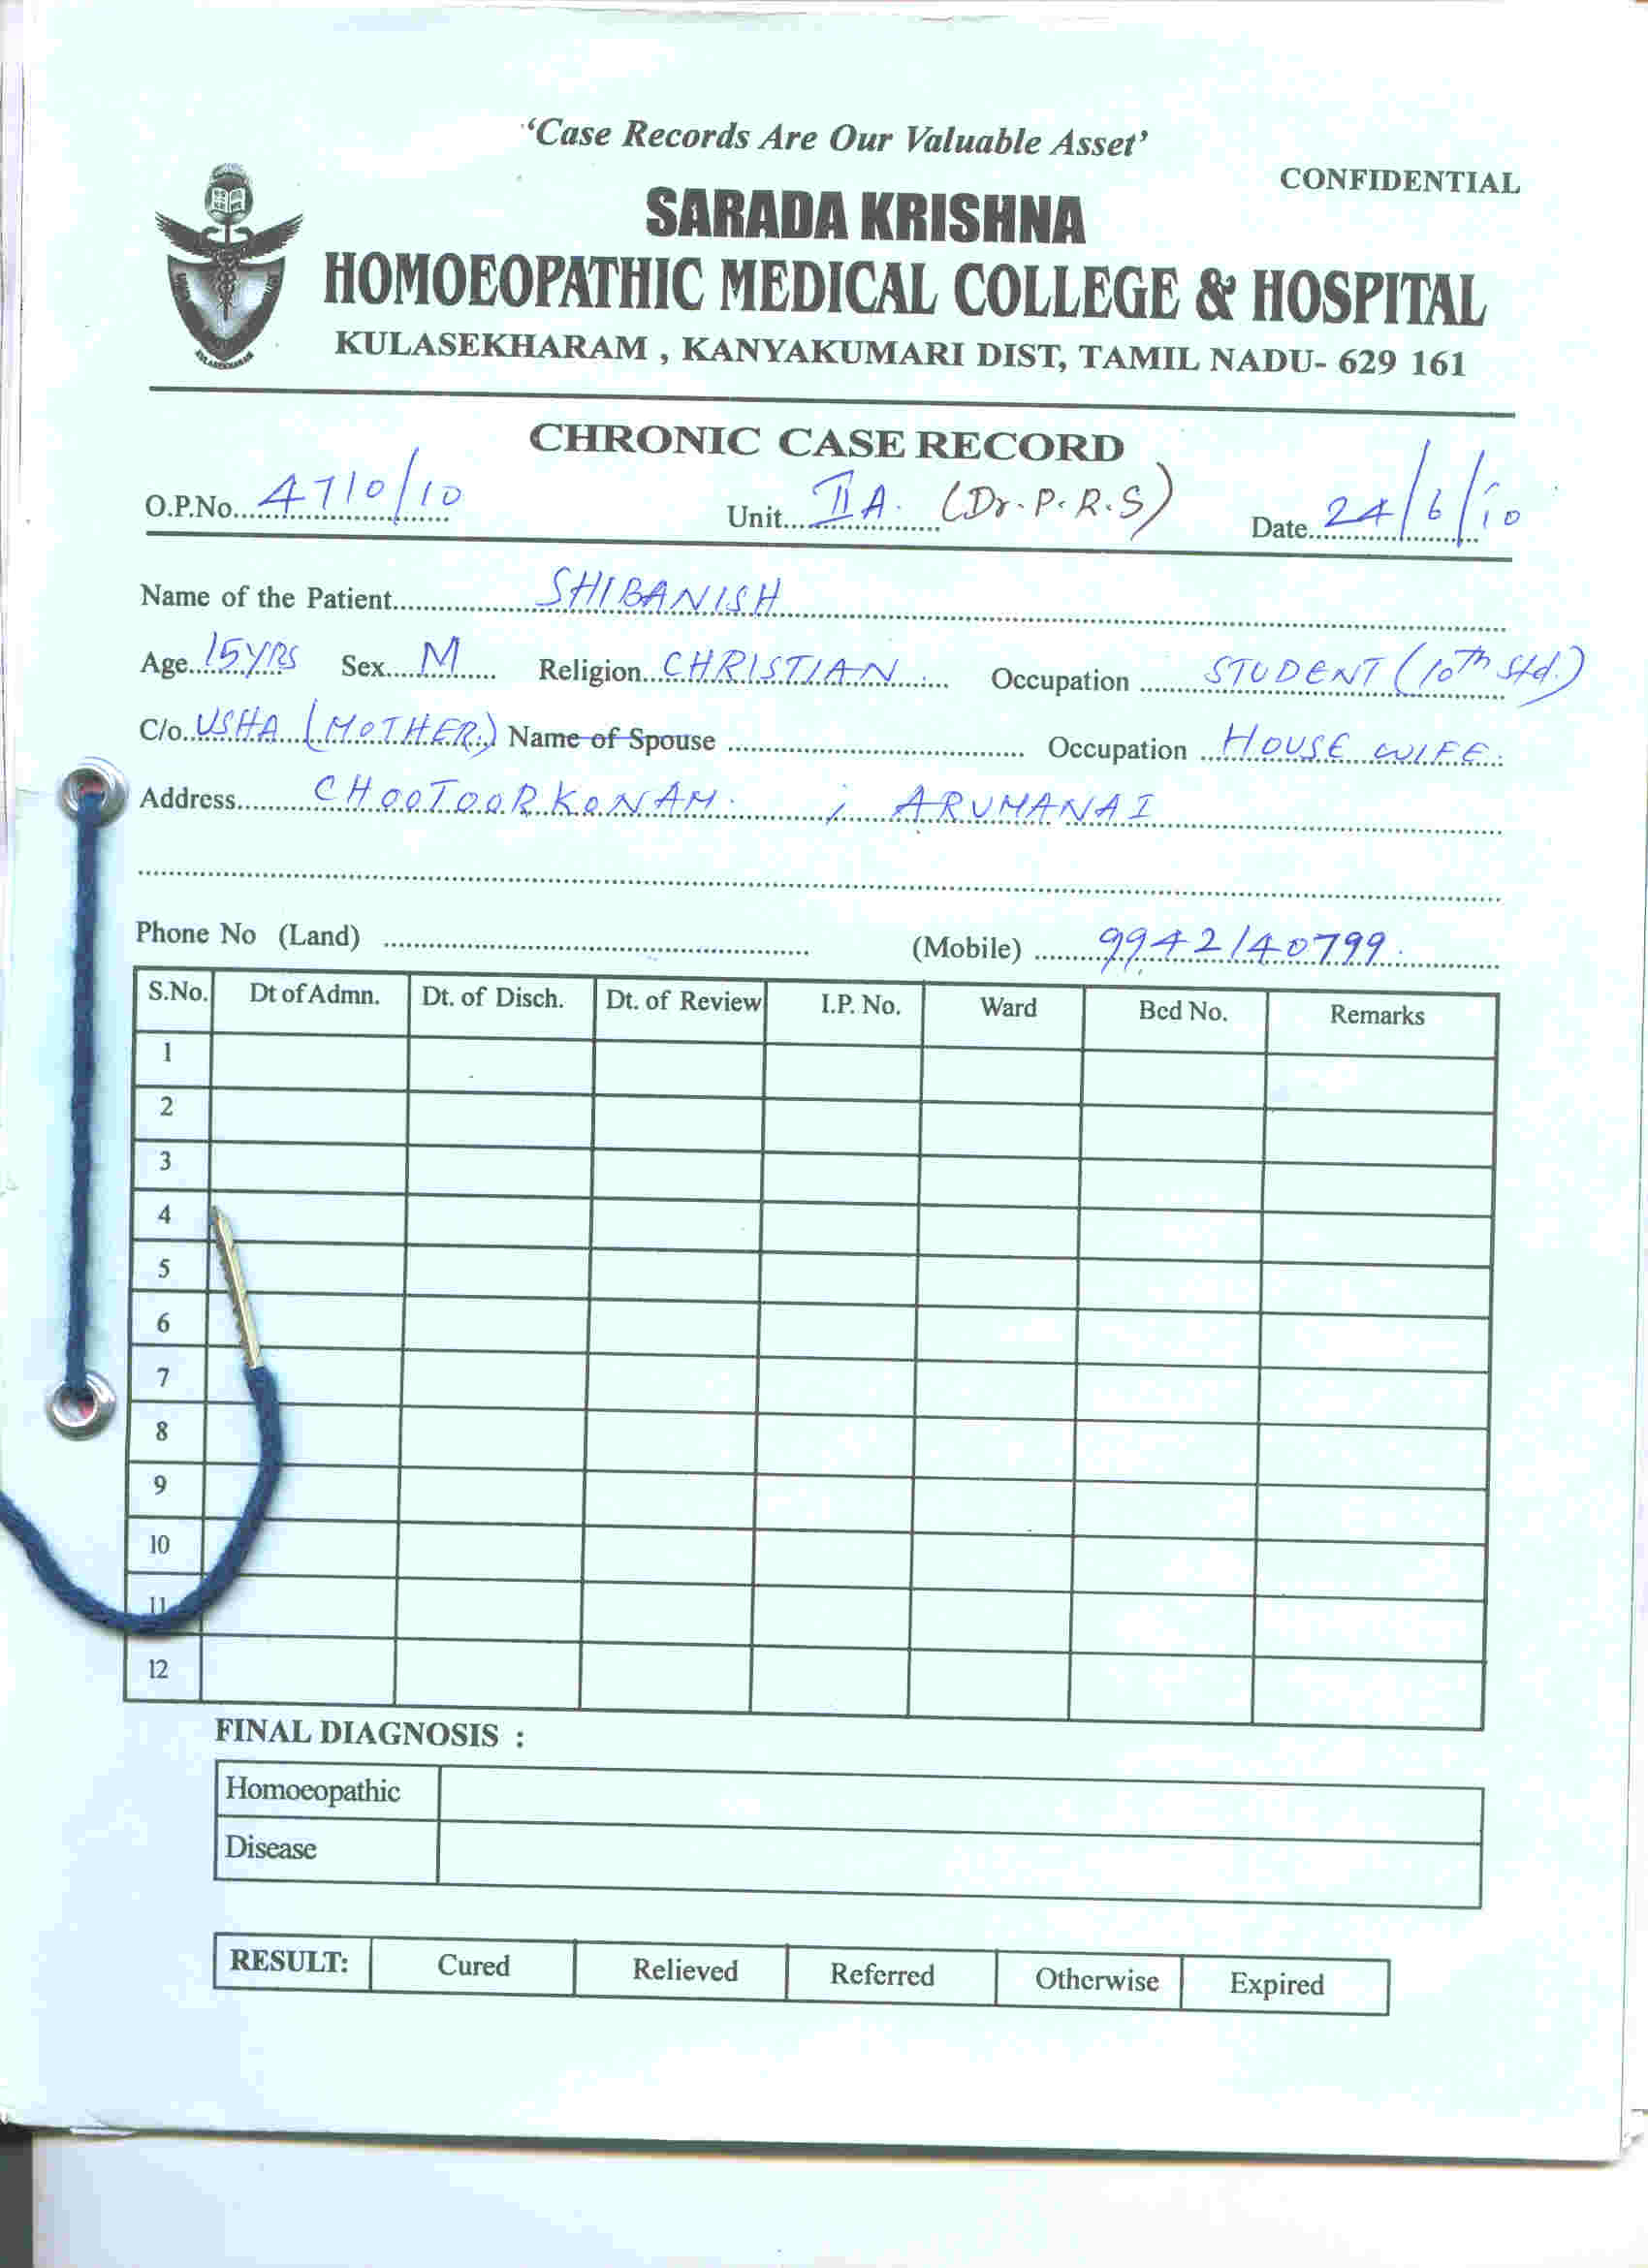 'Case Records Are Our Valuable Asset'
CONFIDENTIAL
SARADA KRISHNA
HOMOEOPATHIC MEDICAL COLLEGE & HOSPITAL
KULASEKHARAM , KANYAKUMARI DIST, TAMIL NADU- 629 161
KULASEKHARAM
CHRONIC CASE RECORD
O.P.No. 4710/10 Unit IIA. (Dr. P. R. S) Date 24/6/10
Name of the Patient SHIBANISH
Age 15YRS Sex M Religion CHRISTIAN Occupation STUDENT (10th Std.)
C/o. USHA (MOTHER) Name of Spouse Occupation HOUSE WIFE.
Address CHOOTOORKONAM. ; ARUMANAI
Phone No (Land) (Mobile) 9942140799.
S.No. Dt of Admn. Dt. of Disch. Dt. of Review I.P. No. Ward Bed No. Remarks
1
2
3
4
5
6
7
8
9
10
11
12
FINAL DIAGNOSIS :
Homoeopathic
Disease
RESULT: Cured Relieved Referred Otherwise Expired